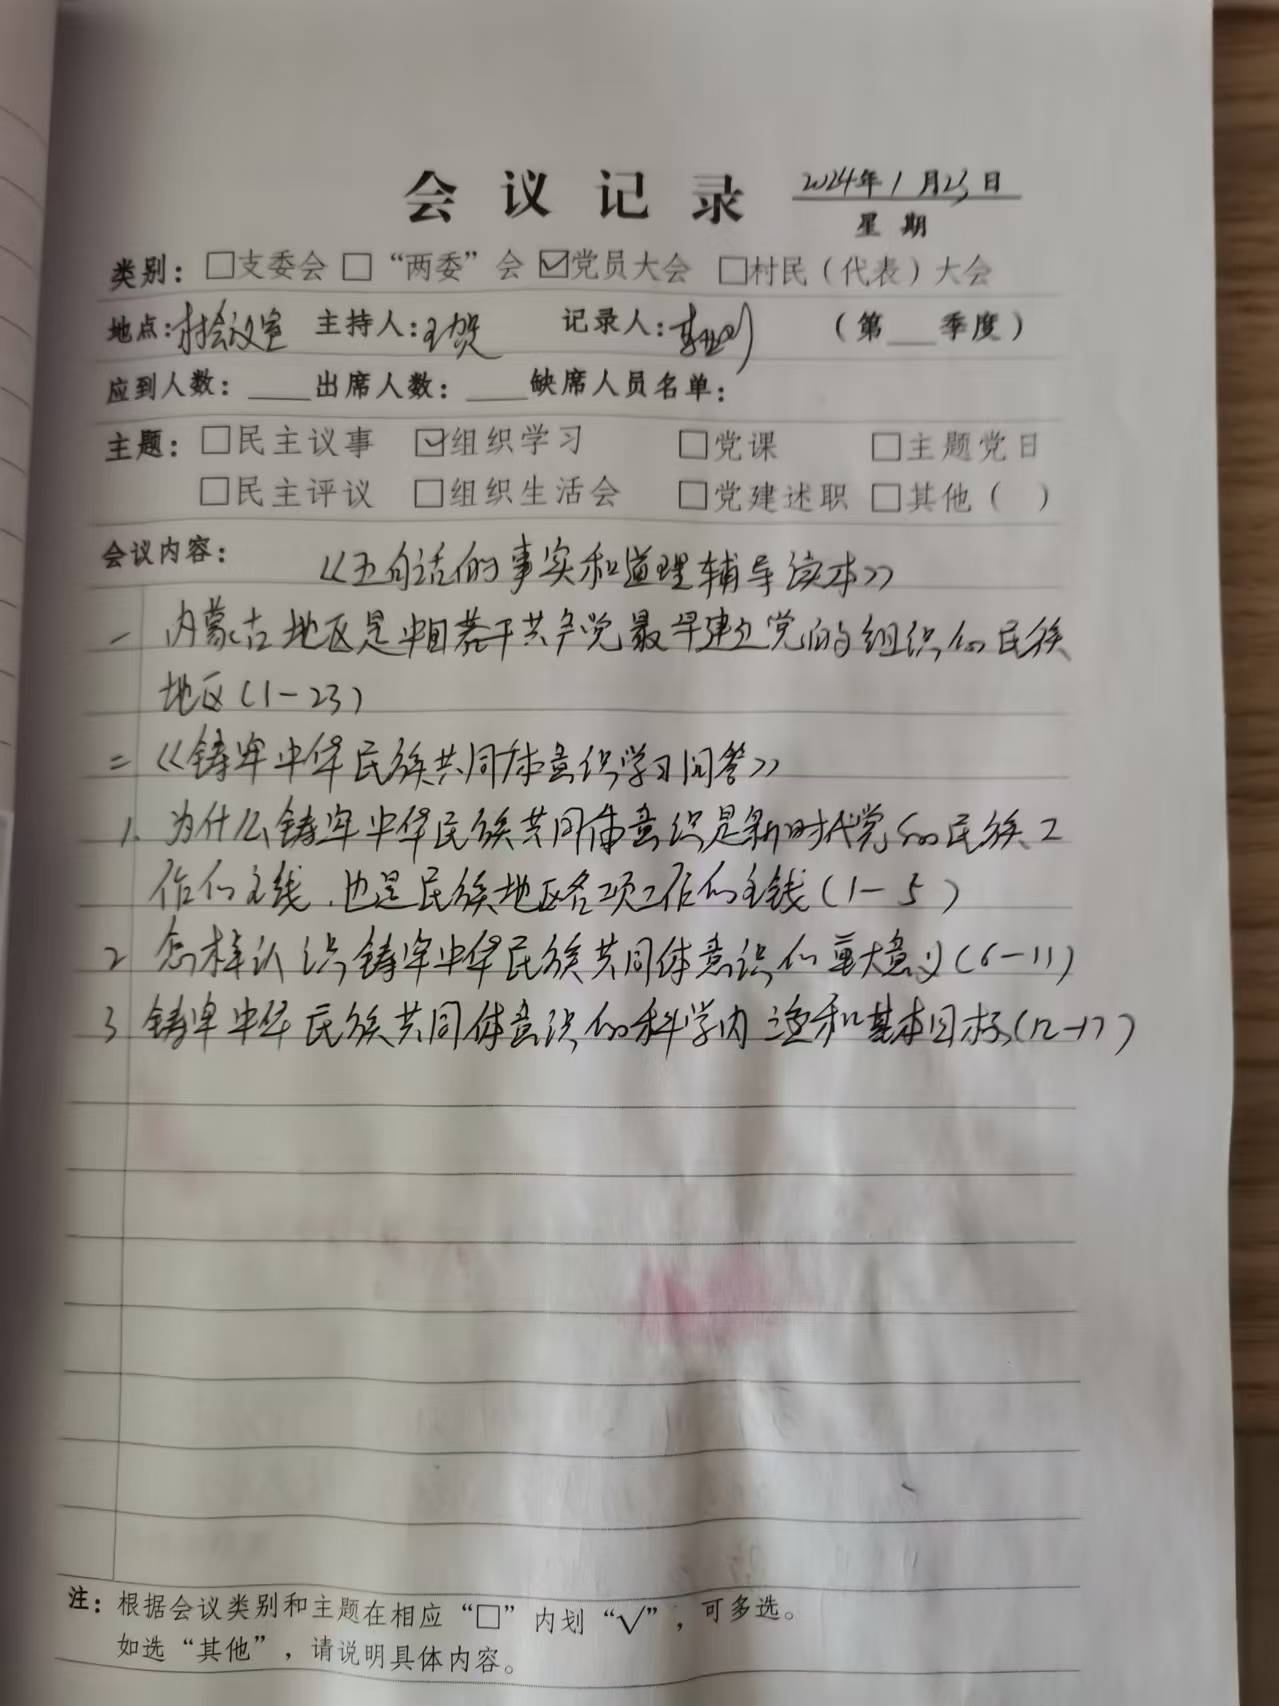 会议记录 2024年1月23日
星期
类别：□支委会 □“两委”会 ☑党员大会 □村民（代表）大会
地点：村会议室 主持人：王贺 记录人： （第___季度）
应到人数：____出席人数：____缺席人员名单：
主题：□民主议事 ☑组织学习 □党课 □主题党日
□民主评议 □组织生活会 □党建述职 □其他（ ）
会议内容： 《五句话的事实和道理辅导读本》
一 内蒙古地区是中国共产党最早建立党的组织的民族
地区(1-23)
二《铸牢中华民族共同体意识学习问答》
1. 为什么铸牢中华民族共同体意识是新时代党的民族工
作的主线，也是民族地区各项工作的主线(1-5)
2 怎样认识铸牢中华民族共同体意识的重大意义(6-11)
3 铸牢中华民族共同体意识的科学内涵和基本目标(12-17)
注：根据会议类别和主题在相应“□”内划“√”，可多选。
如选“其他”，请说明具体内容。